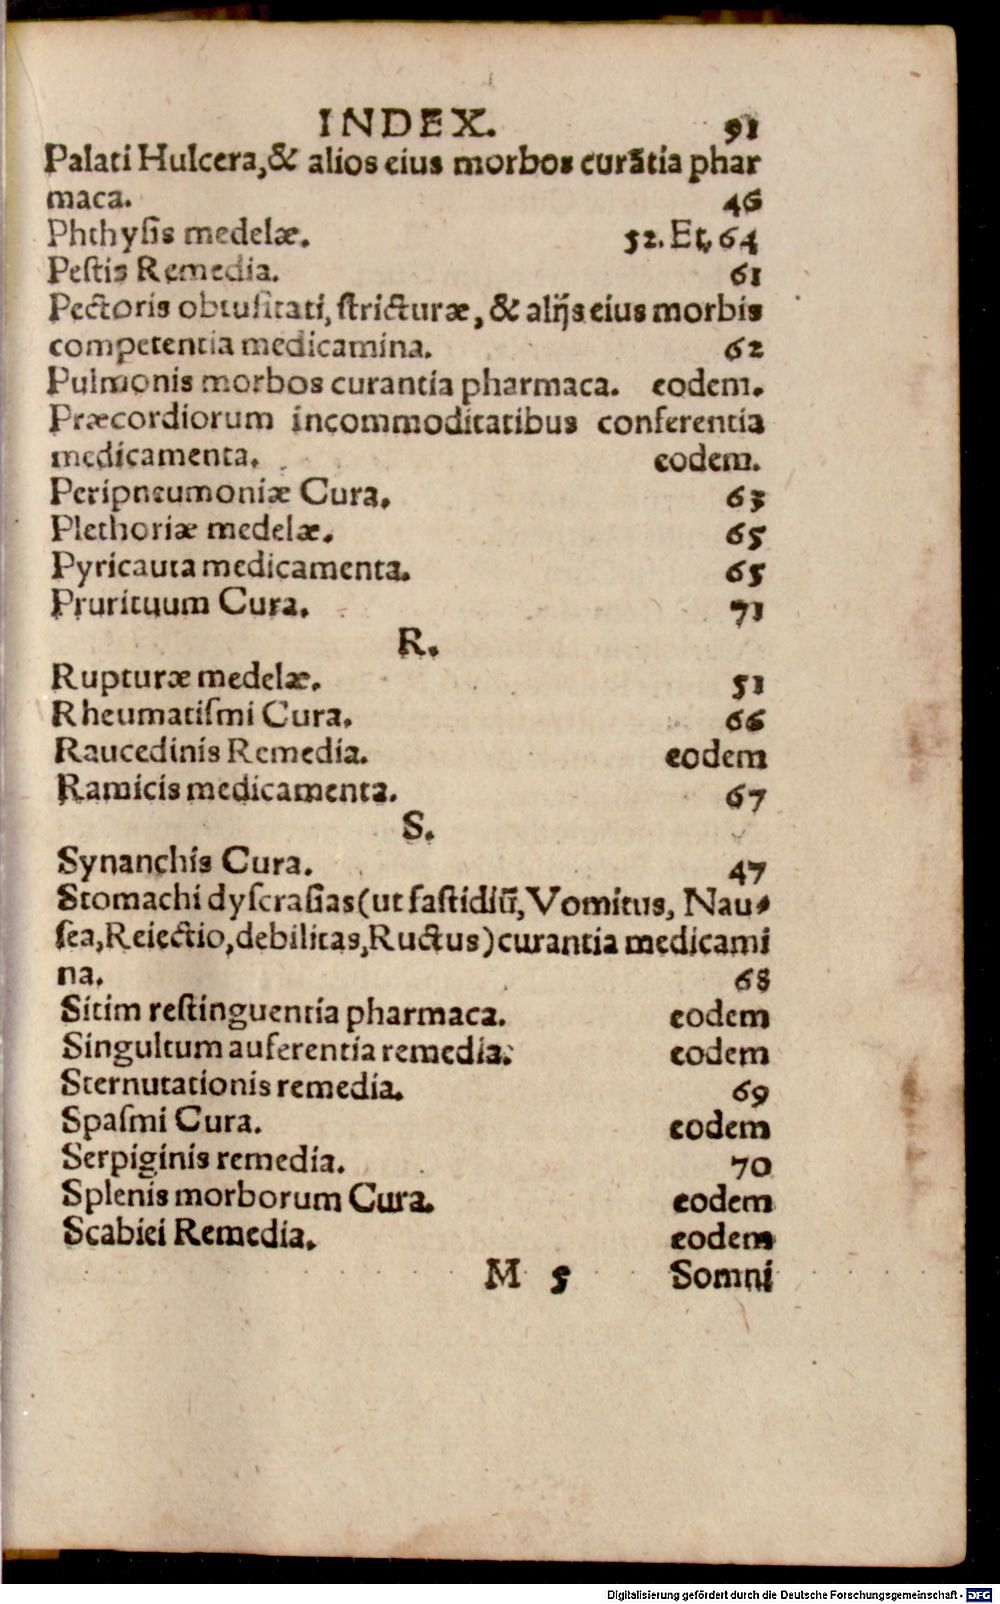 INDEX. 91
Palati Hulcera,& alios eius morbos curãtia phar
maca. 46
Phthyſis medelæ. 52. Et, 64
Peſtis Remedia. 61
Pectoris obtuſitati, ſtricturæ, & alijs eius morbis
competentia medicamina. 62
Pulmonis morbos curantia pharmaca. eodem.
Præcordiorum incommoditatibus conferentia
medicamenta. eodem.
Peripneumoniæ Cura. 63
Plethoriæ medelæ. 65
Pyricauta medicamenta. 65
Prurituum Cura. 71
R.
Rupturæ medelæ. 51
Rheumatiſmi Cura. 66
Raucedinis Remedia. eodem
Ramicis medicamenta. 67
S.
Synanchis Cura. 47
Stomachi dyſcraſias(ut faſtidiũ, Vomitus, Nau-
ſea,Reiectio,debilitas,Ructus)curantia medicami
na. 68
Sitim reſtinguentia pharmaca. eodem
Singultum auferentia remedia. eodem
Sternutationis remedia. 69
Spaſmi Cura. eodem
Serpiginis remedia. 70
Splenis morborum Cura. eodem
Scabiei Remedia. eodem
M 5 Somni
Digitalisierung gefördert durch die Deutsche Forschungsgemeinschaft - DFG